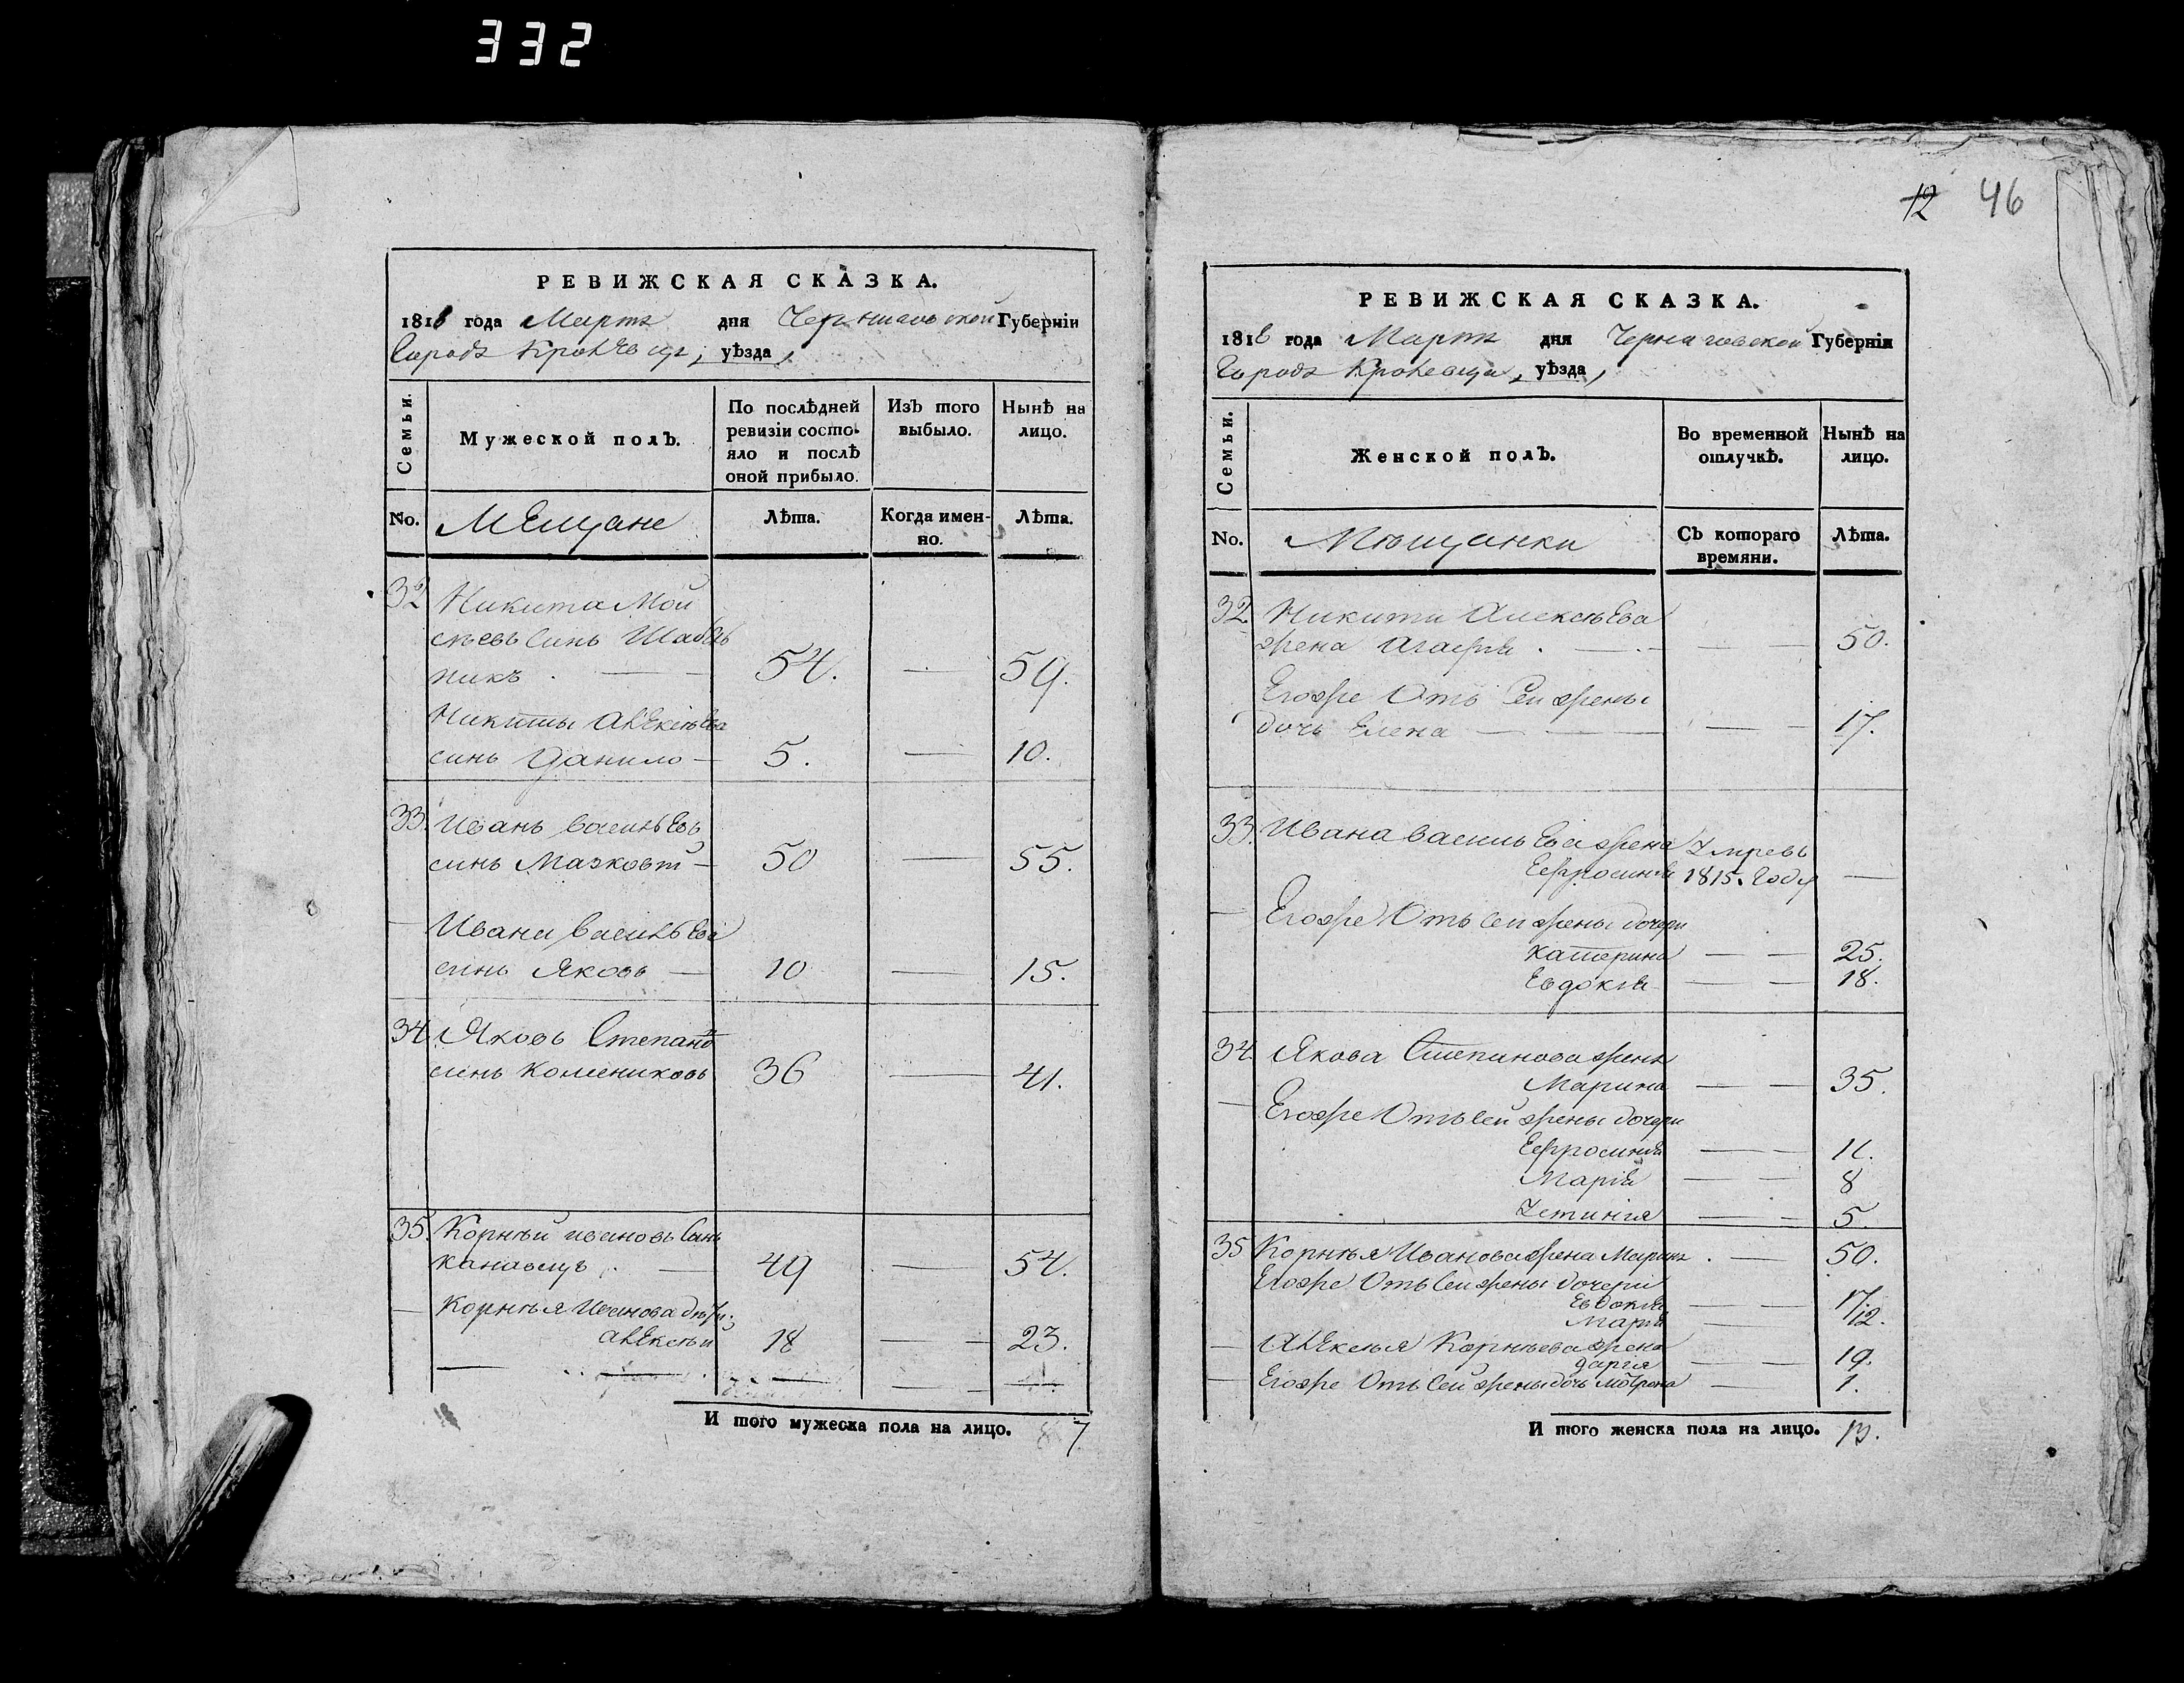 332
12 46
РЕВИЖСКАЯ СКАЗКА.
1816 года Мартъ дня Черниговской Губерніи
Городъ Кролевец, уѣзда,
Семьи.
Мужеской полЪ.
По послѣдней ревизіи состояло и послѣ оной прибыло.
ИзЪ того выбыло.
НынѣЪ на лицо.
No.
Мещане
Лѣта.
Когда именно.
Лѣта.
32 Никита
синъ
никъ . — 54. — 59.
Никиты Алексѣева
синъ Данило — 5. — 10.
33. Иванъ васильевъ
синъ — 50 — 55.
Ивана васильева
синъ Яковъ — 10 — 15.
34. Яковъ Степановъ
синъ 36 — 41.
35. Корнѣй ивановъ синъ
49 — 54.
— Корнѣя Иванова дѣти:
алексѣй 18 — 23.
И того мужеска пола на лицо. 7
РЕВИЖСКАЯ СКАЗКА.
1816 года Мартъ дня Черниговской Губерніи
Городъ Кролевца, уѣзда,
Семьи.
Женской полЪ.
Во временной отлучкѣ.
Нынѣ на лицо.
No.
Мѣщанки
СЪ котораго времяни.
Лѣта.
32. Никити Алексѣева
жена агафія . — — 50.
Егоже Отъ Сей жены
дочь Елена — — 17.
33. Ивана василь Ева жена Умре въ
Ефросинія 1815. Году —
— Егоже Отъ сей жены дочери
Катерина — — 25.
Евдокія — — 18.
34. Якова Степанова жена
Марина — — 35.
— Егоже Отъ сей жены дочери
Ефросинія — — 11.
Марія — — 8
Устинія — — 5.
35 Корнѣя Иванова жена Марина . — 50.
Егоже Отъ Сей жены дочери
Евдокія — — 17
Марія — 12.
— Алексѣя Корнѣева жена
дарія — — 19.
— Егоже Отъ Сей жены дочь Мотрона — 1.
И того женска пола на лицо. 13.